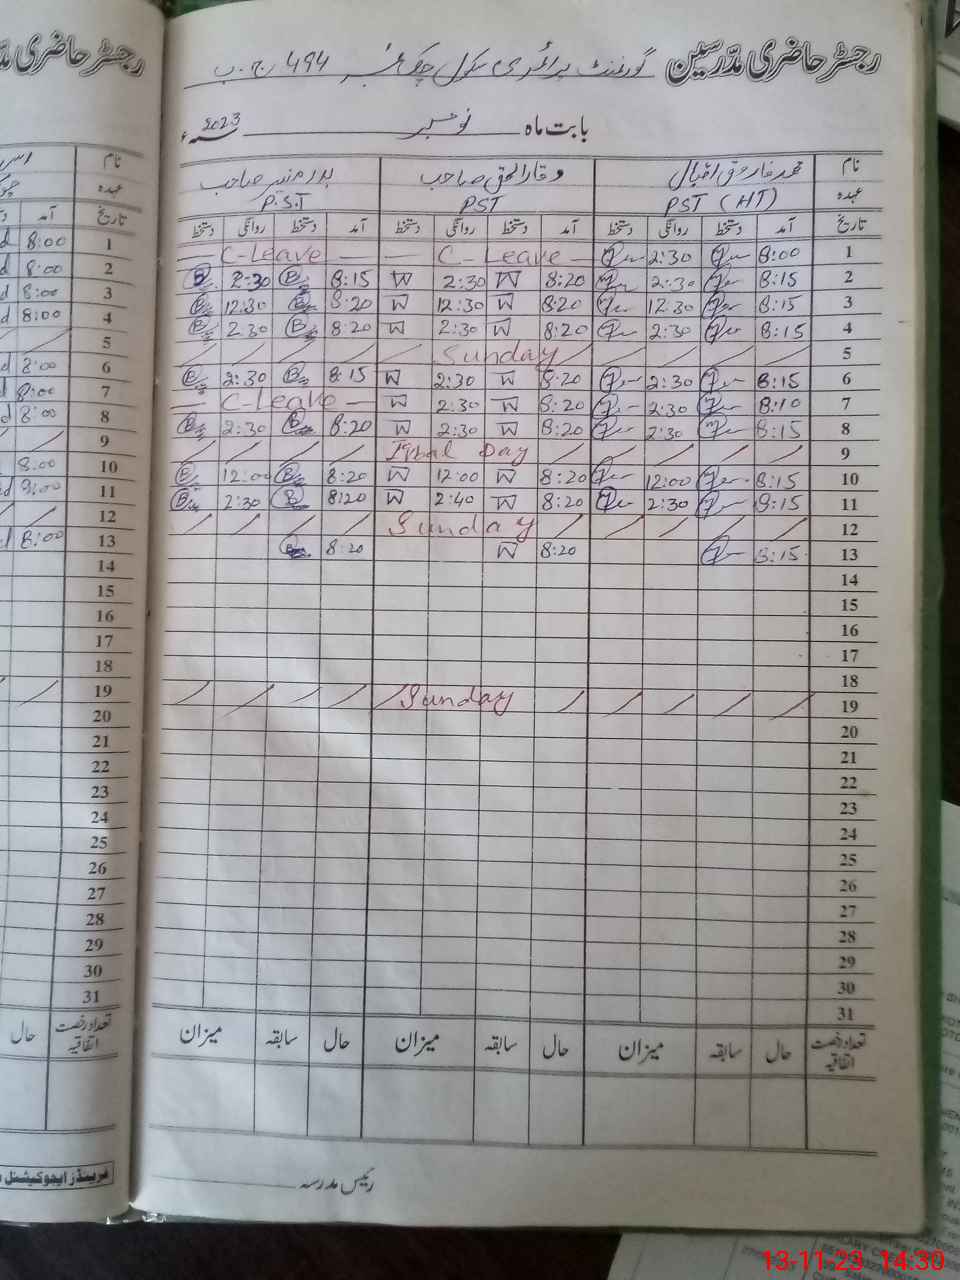 رجسٹر حاضری مدّرسین گورنمنٹ پرائمری سکول چک نمبر 494 ج۔ب
بابت ماہ نومبر 2023ء
نام محمد فاروق اقبال وقار الحق صاحب بدر منیر صاحب
عہدہ PST (HT) PST P.S.T
تاریخ آمد دستخط روانگی دستخط آمد دستخط روانگی دستخط آمد دستخط روانگی دستخط
1 8:00 2:30 C-Leave C-Leave
2 8:15 2:30 8:20 W 2:30 W 8:15 B 2:30 B
3 8:15 12:30 8:20 W 12:30 W 8:20 B 12:30 B
4 8:15 2:30 8:20 W 2:30 W 8:20 B 2:30 B
5 Sunday
6 8:15 2:30 8:20 W 2:30 W 8:15 B 2:30 B
7 8:10 2:30 8:20 W 2:30 W C-Leave
8 8:15 2:30 8:20 W 2:30 W 8:20 B 2:30 B
9 Iqbal Day
10 8:15 12:00 8:20 W 12:00 W 8:20 B 12:00 B
11 8:15 2:30 8:20 W 2:40 W 8:20 B 2:30 B
12 Sunday
13 8:15 8:20 W 8:20 B
14
15
16
17
18
19 Sunday
20
21
22
23
24
25
26
27
28
29
30
31
تعداد رخصت اتفاقیہ حال سابقہ میزان حال سابقہ میزان حال سابقہ میزان
رئیس مدرسہ
رجسٹر حاضری
نام
عہدہ
تاریخ آمد
1 8:00
2 8:00
3 8:00
4 8:00
5
6 8:00
7 8:00
8 8:00
9
10 8:00
11 9:00
12
13 8:00
14
15
16
17
18
19
20
21
22
23
24
25
26
27
28
29
30
31
تعداد رخصت اتفاقیہ حال
فرینڈز ایجوکیشنل
13-11-23 14:30